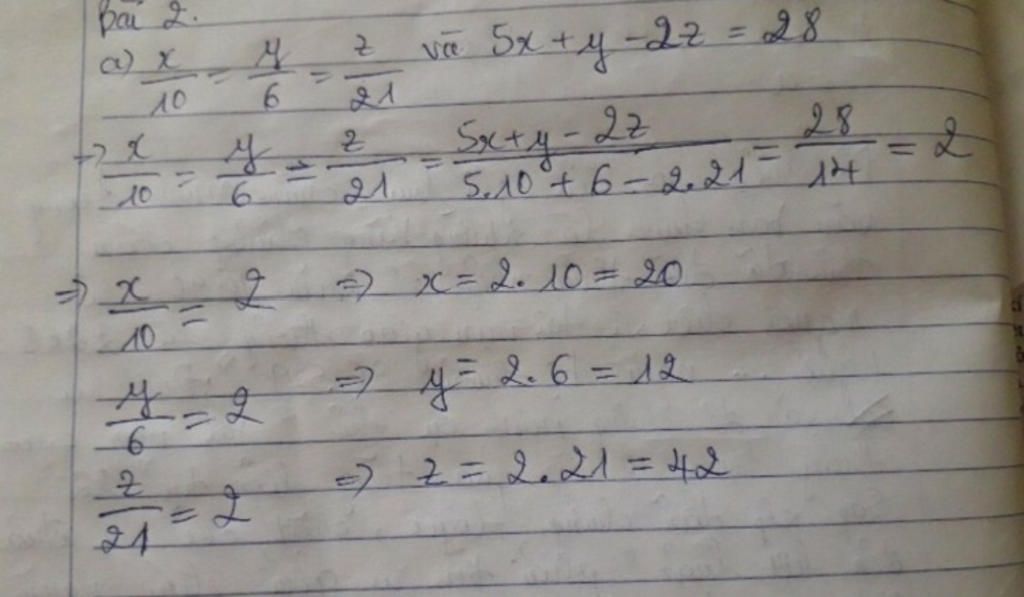 Bài 2.
a) x/10 = y/6 = z/21 và 5x + y - 2z = 28
→ x/10 = y/6 = z/21 = (5x + y - 2z)/(5.10 + 6 - 2.21) = 28/14 = 2
⇒ x/10 = 2 ⇒ x = 2.10 = 20
y/6 = 2 ⇒ y = 2.6 = 12
z/21 = 2 ⇒ z = 2.21 = 42